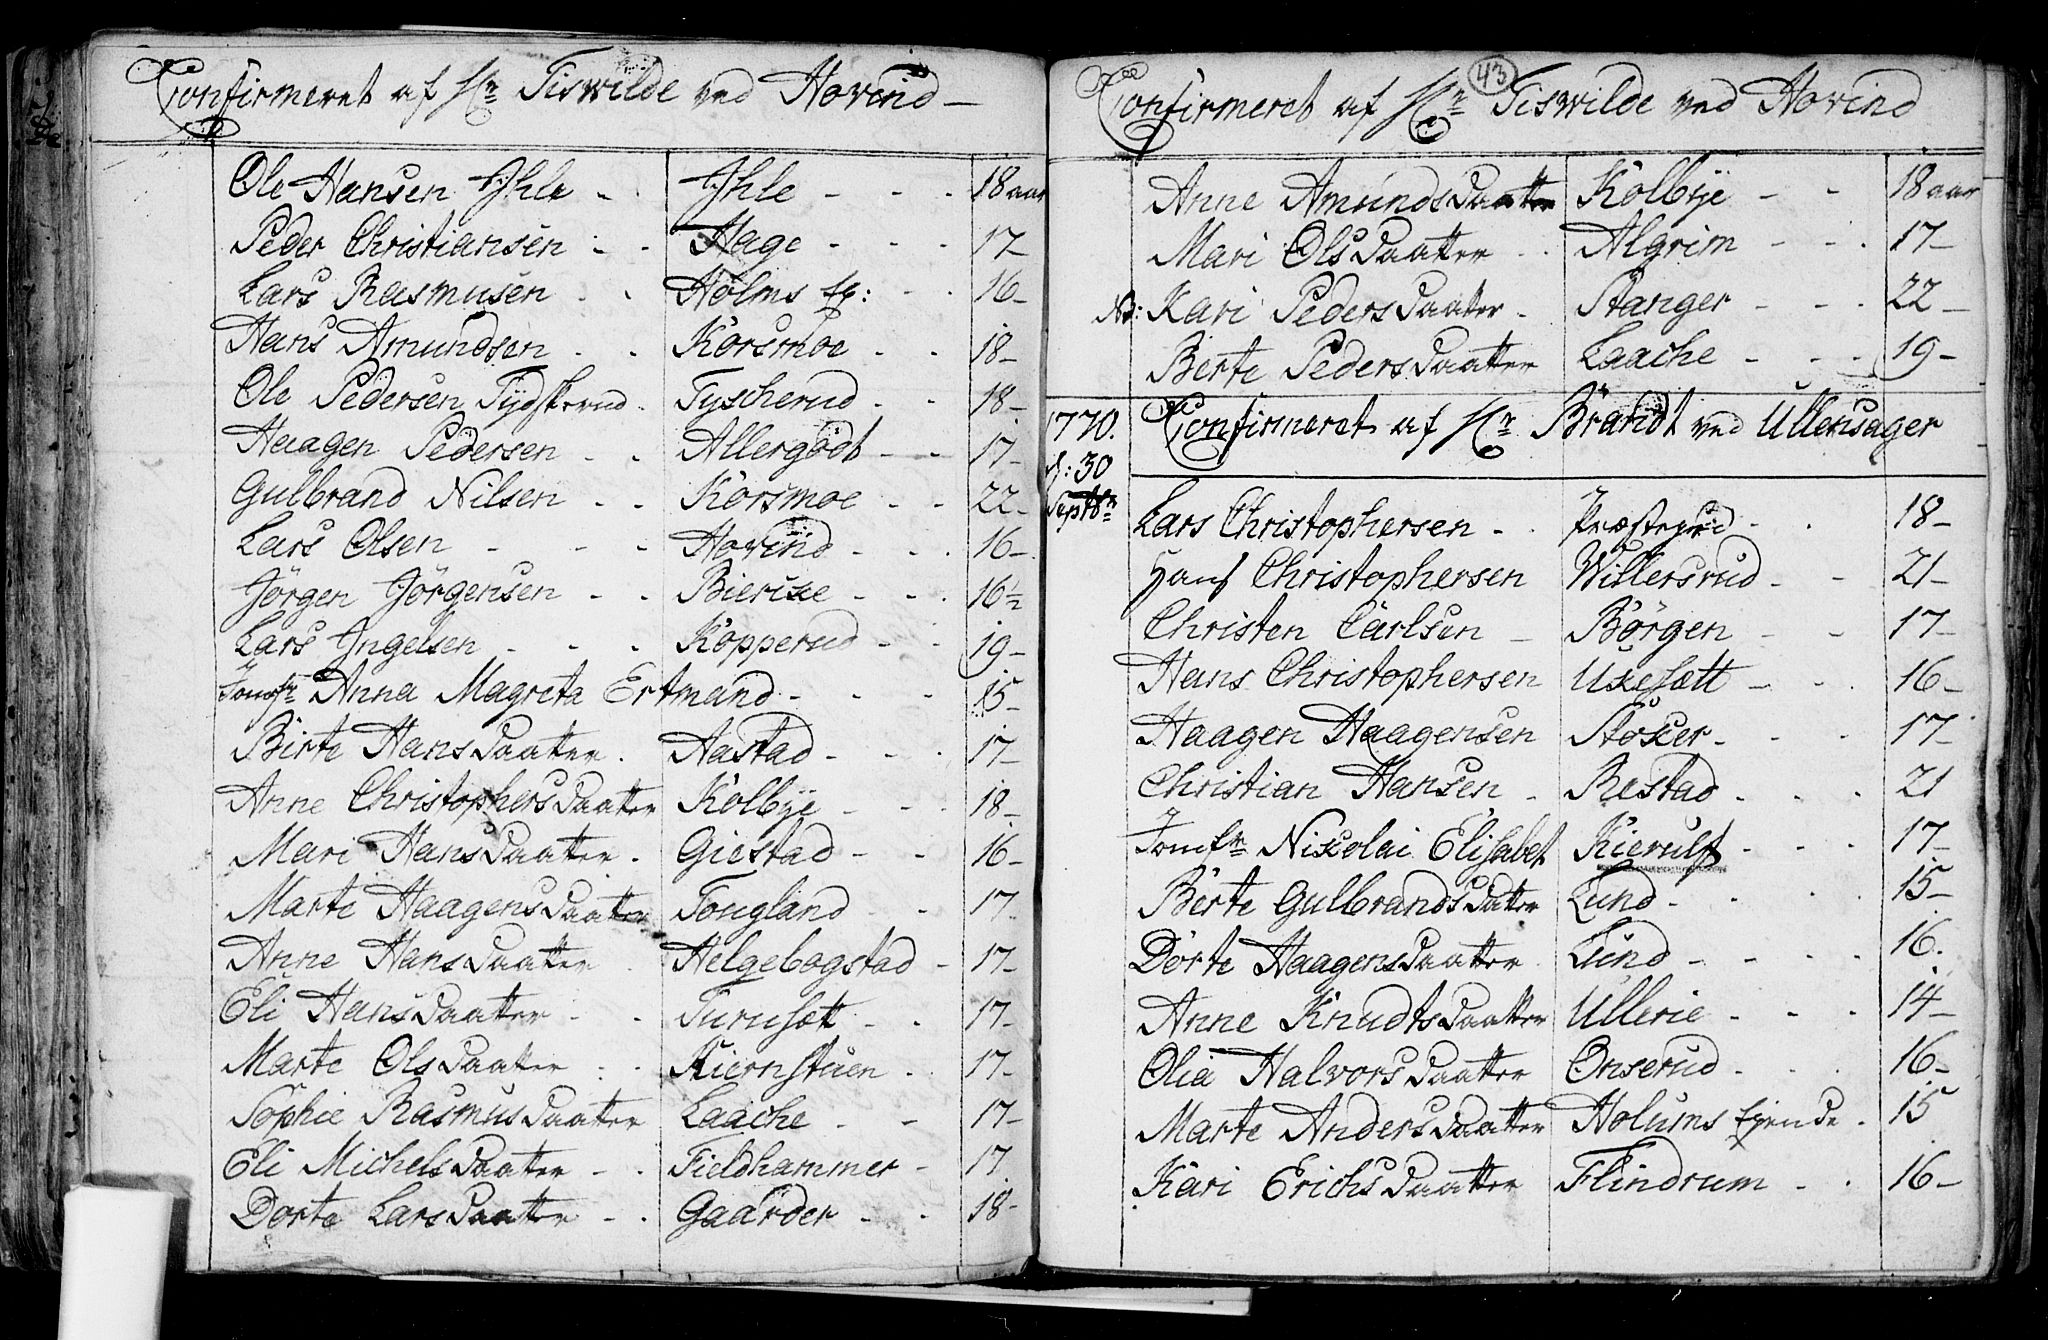 Confirmeret af Hr Tiswilde ved Hovind
Ole Hansen Ihle - - Ihle - - - 18 aar
Peder Christiansen - - Hage - - - 17
Lars Rasmusen - - Holms - - 16
Hans Amundsen - - Korsmoe - - 18
Ole Pedersen Tydskerud - Tyscherud - - 18
Haagen Pedersen - - Allergodt - - 17
Gulbrand Nilsen - - Korsmoe - - 22
Lars Olsen - - - Hovind - - - 16
Jörgen Jörgensen - - Bierixe - - - 16½
Lars Ingelsen - - - Kopperud - - 19
Jomfr Anna Magreta Ertmand - - - 15
Birte Hansdaatter - Aastad - - - 17
Anne Christophersdaatter Kolbye - - - 18
Mari Hansdaatter - Giestad - - 16
Marte Haagensdaatter Tougland - - 17
Anne Hansdaatter Helgebogstad - 17
Eli Hansdaatter - - Furusæt - - 17
Marte Olsdaatter - - Kiernstuen - - 17
Sophie Rasmusdaatter Laache - - 17
Eli Michelsdaatter - - Fieldhammer - 17
Dorte Larsdaatter - - Gaarder - - 18
43
Confirmeret af Hr Tiswilde ved Hovind
Anne Amundsdaatter Kolbye - - 18 aar
Mari Olsdaatter - - Algrim - - - 17
NB: Kari Pedersdaatter - Stanger - - - 22
Berte Pedersdaatter Laache - - - 19
1770. Confirmeret af Hr Brandt ved Ullensager
d: 30
Septbr
Lars Christophersen - - Præsterud - - 18
Hans Christophersen Willersrud - - 21
Christen Carlsen - Börgen - - 17
Hans Christophersen Uxesætt - - - 16
Haagen Haagensen Stoxer - - - 17
Christian Hansen - Restad - - - 21
Jomfr Nixolai Elisabet Kierulf - - - 17
Berte Gulbrandsdatter Lund - - - 15
Dorte Haagensdaatter Lund - - - - 16.
Anne Knudtsdaatter Ullerie - - - 14
Olia Halvorsdaatter Onserud - - - 16
Marte Andersdaatter Holums Eyende - 15
Kari Erichsdaatter Flindrum - - 16